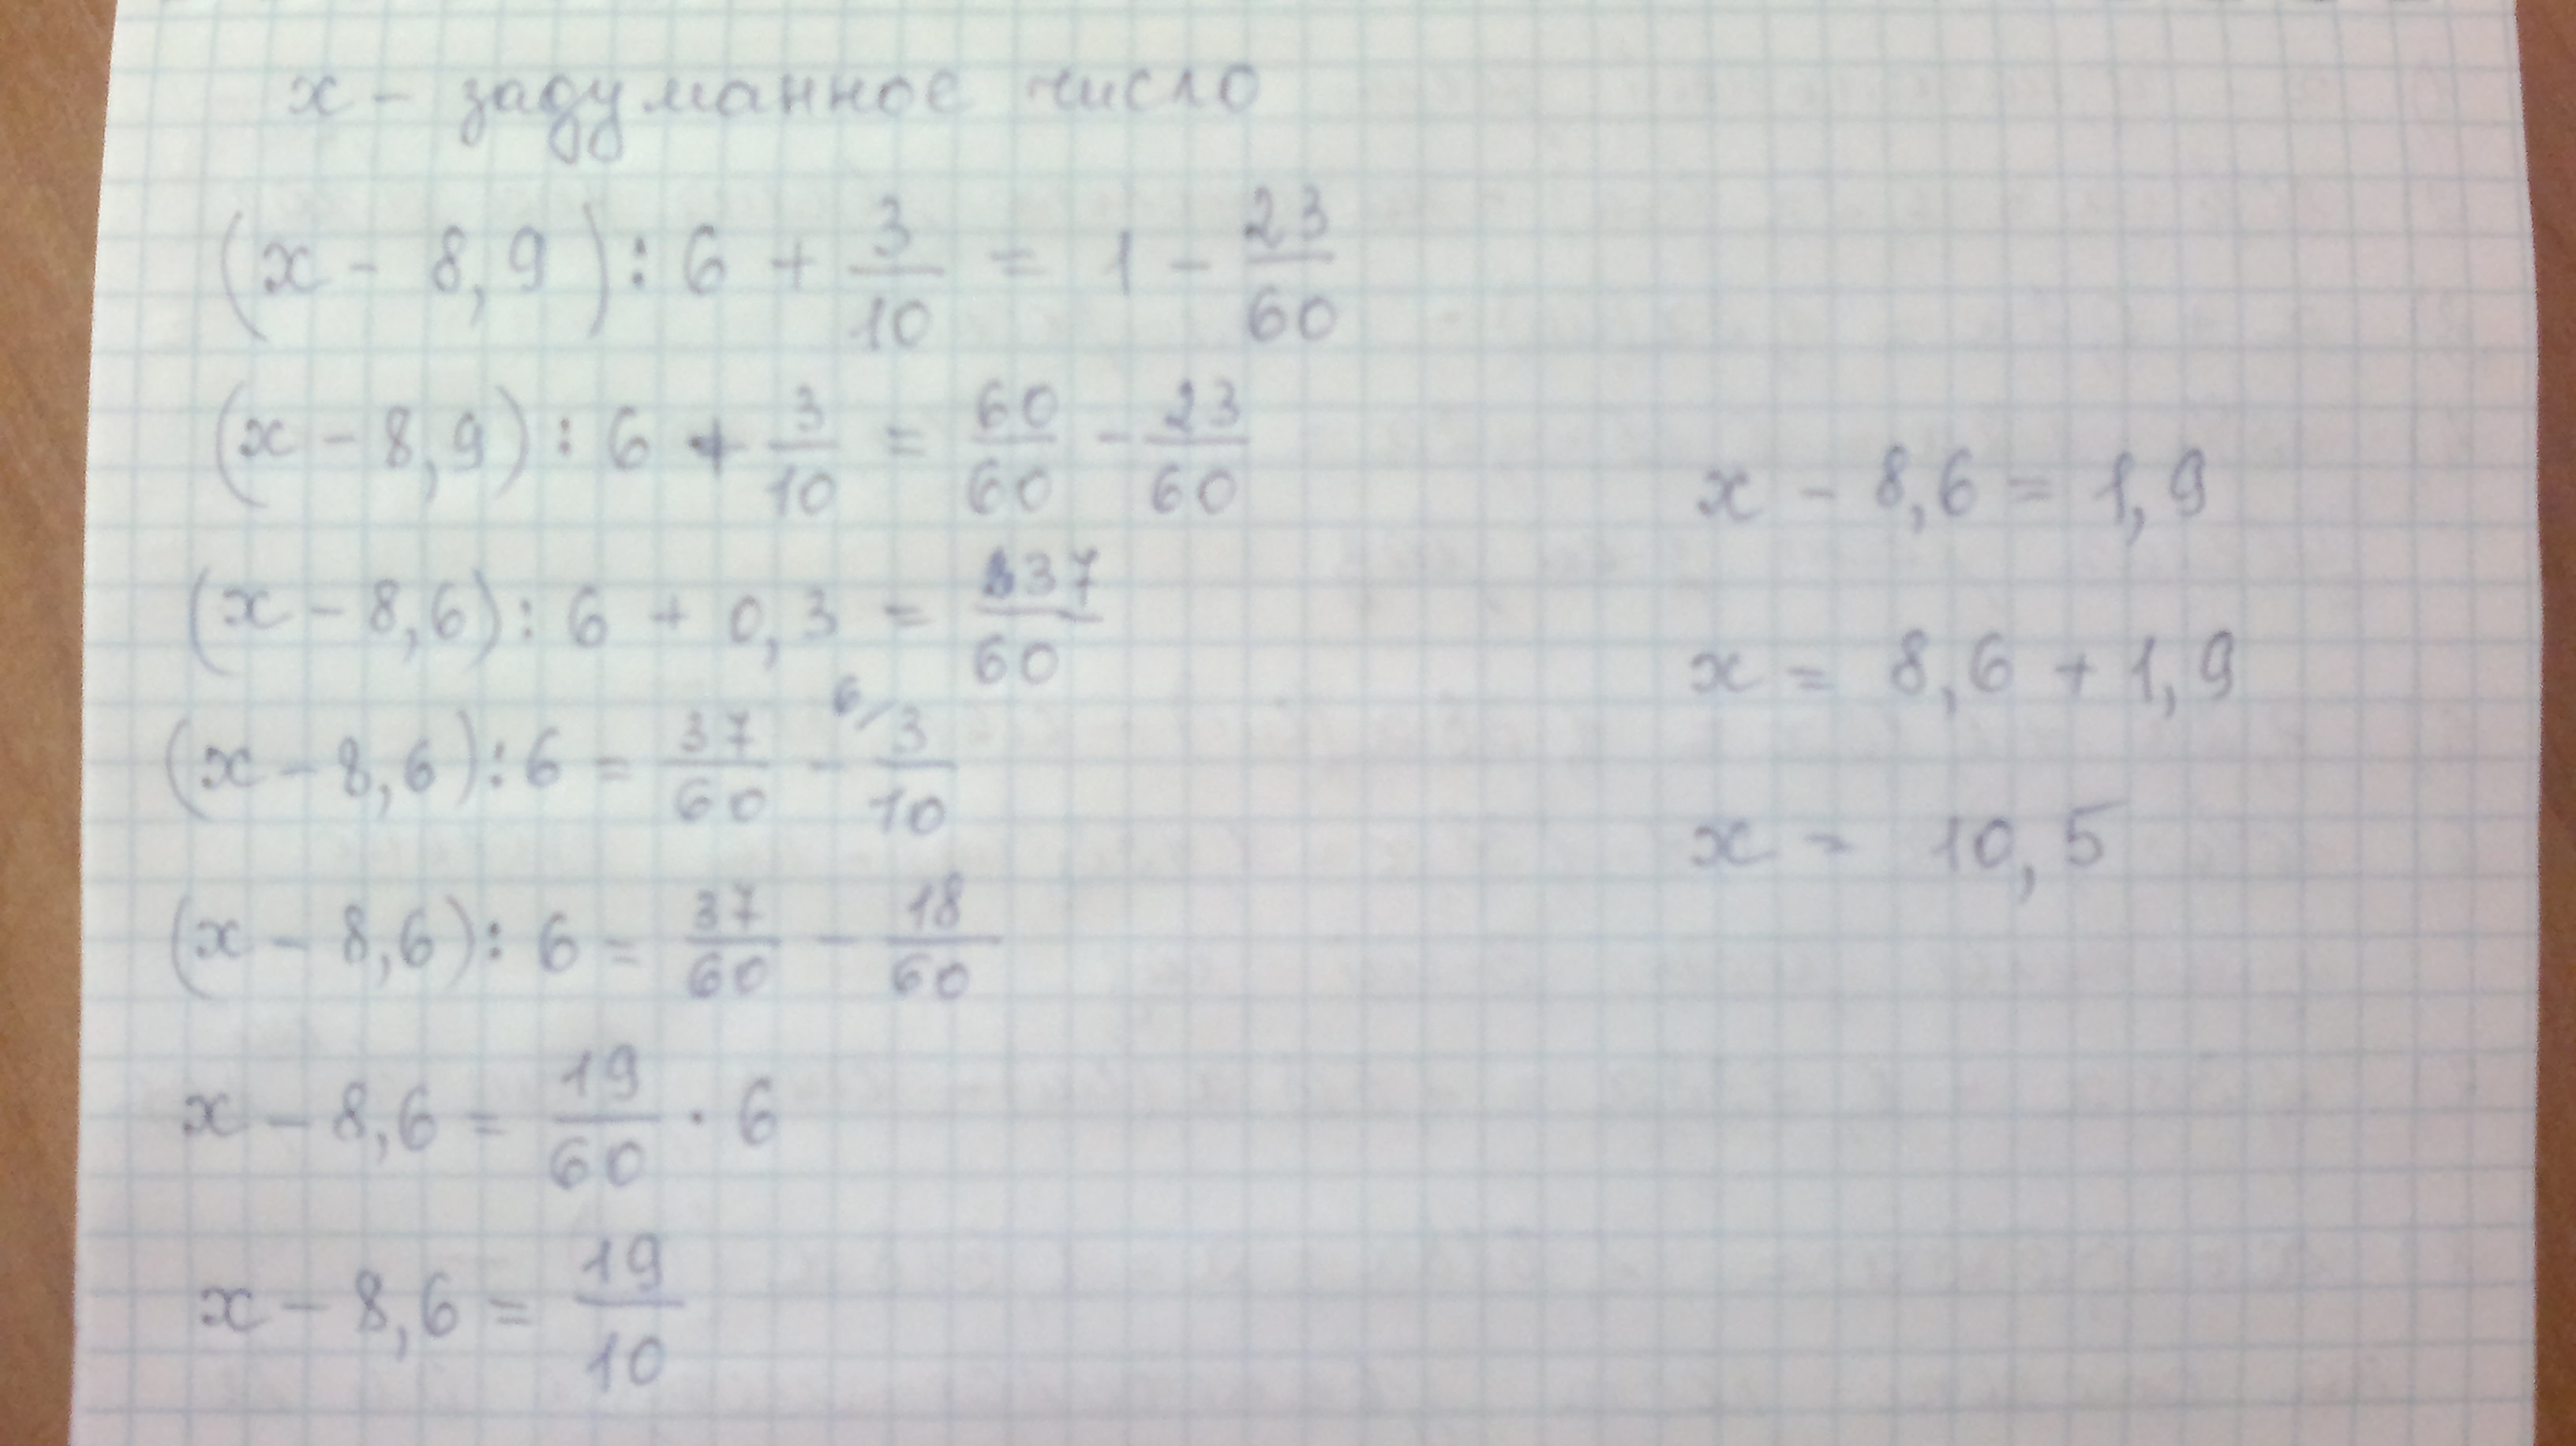 x – задуманное число
(x - 8,9) : 6 + 3/10 = 1 - 23/60
(x - 8,9) : 6 + 3/10 = 60/60 - 23/60
(x - 8,6) : 6 + 0,3 = 37/60
(x - 8,6) : 6 = 37/60 - 6/ 3/10
(x - 8,6) : 6 = 37/60 - 18/60
x - 8,6 = 19/60 · 6
x - 8,6 = 19/10
x - 8,6 = 1,9
x = 8,6 + 1,9
x = 10,5